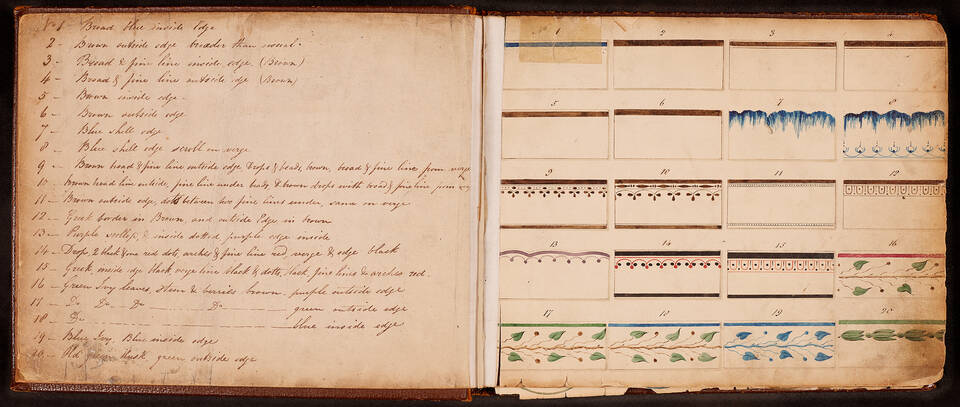 No 1 - Broad blue inside Edge
2 - Brown outside edge broader than usual.
3 - Broad & fine line inside edge. (Brown)
4 - Broad & fine line outside edge (Brown)
5 - Brown inside edge.
6 - Brown outside edge
7 - Blue shell edge
8 - Blue shell edge scroll on verge
9 - Brown broad & fine line outside edge Drops & beads, brown, broad & fine line from verge
10 - brown broad line outside, fine line under beads & brown drops with broad & fine line from
11 - Brown outside edge, dots between two fine lines under, same on verge
12 - Greek border in Brown, and outside Edge in brown
13 - Purple scollop, & inside dotted, purple edge inside
14 - Drop 2 black & one red dots, arches & fine line red, verge & edge black
15 - Greek, inside edge black, verge line black & dotts, black fine lines & arches red.
16 - Green Ivy leaves, stem & berries brown. purple outside edge
17 - Do Do Do Do green outside edge
18 - Do blue inside edge
19 - Blue Ivy. Blue inside edge
20 - Old green Husk green outside edge
1 2 3 4
5 6 7 8
9 10 11 12
13 14 15 16
17 18 19 20